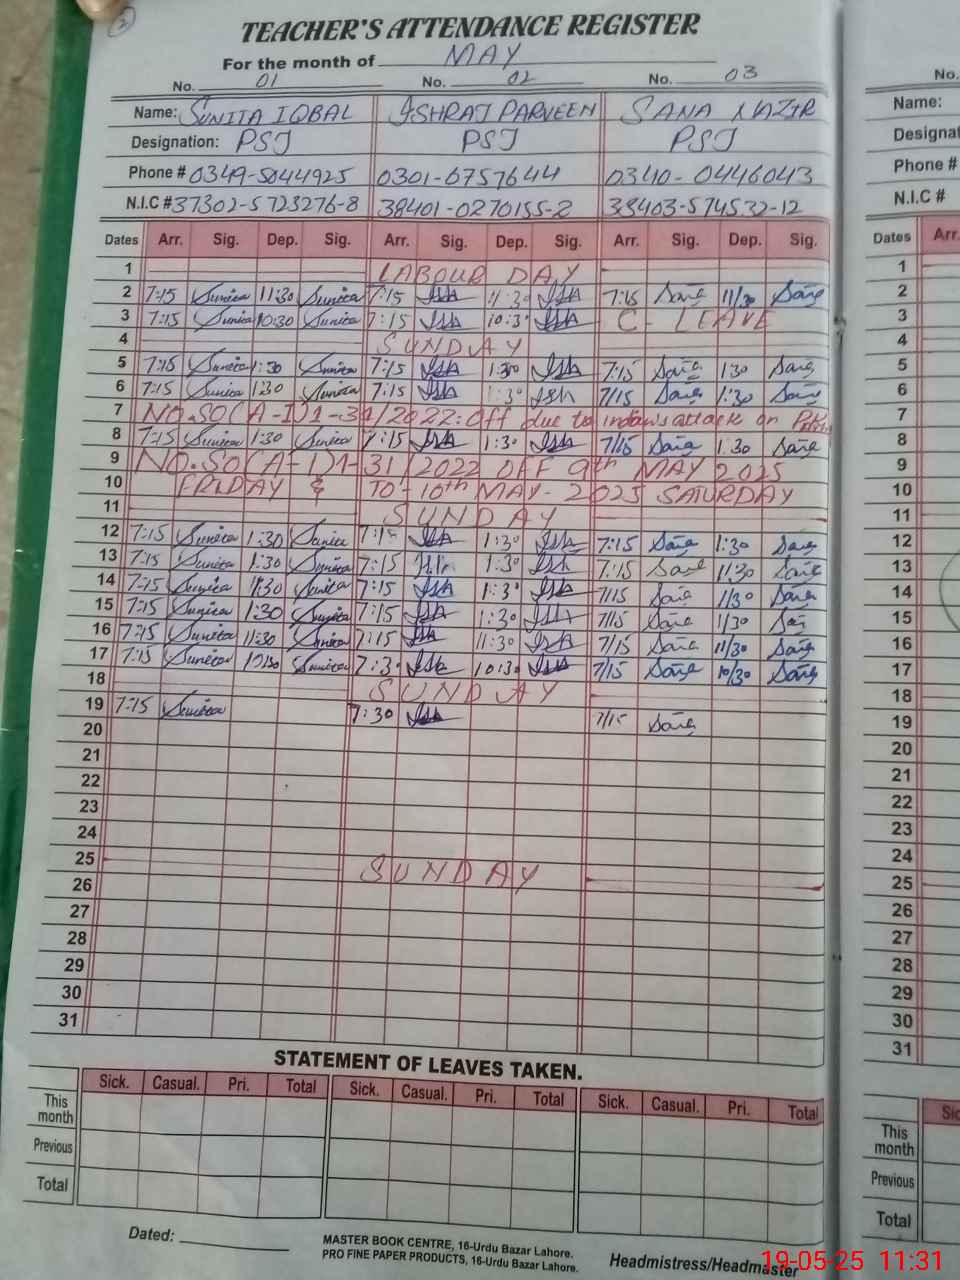 2
TEACHER'S ATTENDANCE REGISTER
For the month of MAY
No. 01 No. 02 No. 03 No.
Name: SUNITA IQBAL ISHRAT PARVEEN SANA NAZIR Name:
Designation: PST PST PST Designat
Phone # 0349-5044925 0301-6757644 0340-0446043 Phone #
N.I.C # 37302-5723276-8 38401-0270155-2 38403-574532-12 N.I.C #
Dates Arr. Sig. Dep. Sig. Arr. Sig. Dep. Sig. Arr. Sig. Dep. Sig. Dates Arr.
1 LABOUR DAY 1
2 7:15 Sunita 11:30 Sunita 7:15 Ish 11:30 Ish 7:15 Sana 11/30 Sana 2
3 7:15 Sunita 10:30 Sunita 7:15 Ish 10:30 Ish C- LEAVE 3
4 SUNDAY 4
5 7:15 Sunita 1:30 Sunita 7:15 Ish 1:30 Ish 7:15 Sana 1:30 Sana 5
6 7:15 Sunita 1:30 Sunita 7:15 Ish 1:30 Ish 7/15 Sana 1:30 Sana 6
7 NO.SO(A-I)1-31/2022: Off due to attack on 7
8 7:15 Sunita 1:30 Sunita 7:15 Ish 1:30 Ish 7/15 Sana 1:30 Sana 8
9 NO.SO(A-I)1-31/2022 OFF 9th MAY 2025 9
10 FRIDAY & TO-10th MAY-2025 SATURDAY 10
11 SUNDAY 11
12 7:15 Sunita 1:30 Sunita 7:15 Ish 1:30 Ish 7:15 Sana 1:30 Sana 12
13 7:15 Sunita 1:30 Sunita 7:15 Ish 1:30 Ish 7:15 Sana 11:30 Sana 13
14 7:15 Sunita 11:30 Sunita 7:15 Ish 1:30 Ish 7/15 Sana 1/30 Sana 14
15 7:15 Sunita 1:30 Sunita 7:15 Ish 1:30 Ish 7/15 Sana 1/30 Sana 15
16 7:15 Sunita 11:30 Sunita 7:15 Ish 11:30 Ish 7/15 Sana 11/30 Sana 16
17 7:15 Sunita 10:30 Sunita 7:30 Ish 10:30 Ish 7/15 Sana 10/30 Sana 17
18 SUNDAY 18
19 7:15 Sunita 7:30 Ish 7/15 Sana 19
20 20
21 21
22 22
23 23
24 24
25 SUNDAY 25
26 26
27 27
28 28
29 29
30 30
31 31
STATEMENT OF LEAVES TAKEN.
Sick. Casual. Pri. Total Sick. Casual. Pri. Total Sick. Casual. Pri. Total Sic
This month This month
Previous Previous
Total Total
Dated:
MASTER BOOK CENTRE, 16-Urdu Bazar Lahore.
PRO FINE PAPER PRODUCTS, 16-Urdu Bazar Lahore.
Headmistress/Headmaster
19-05-25 11:31